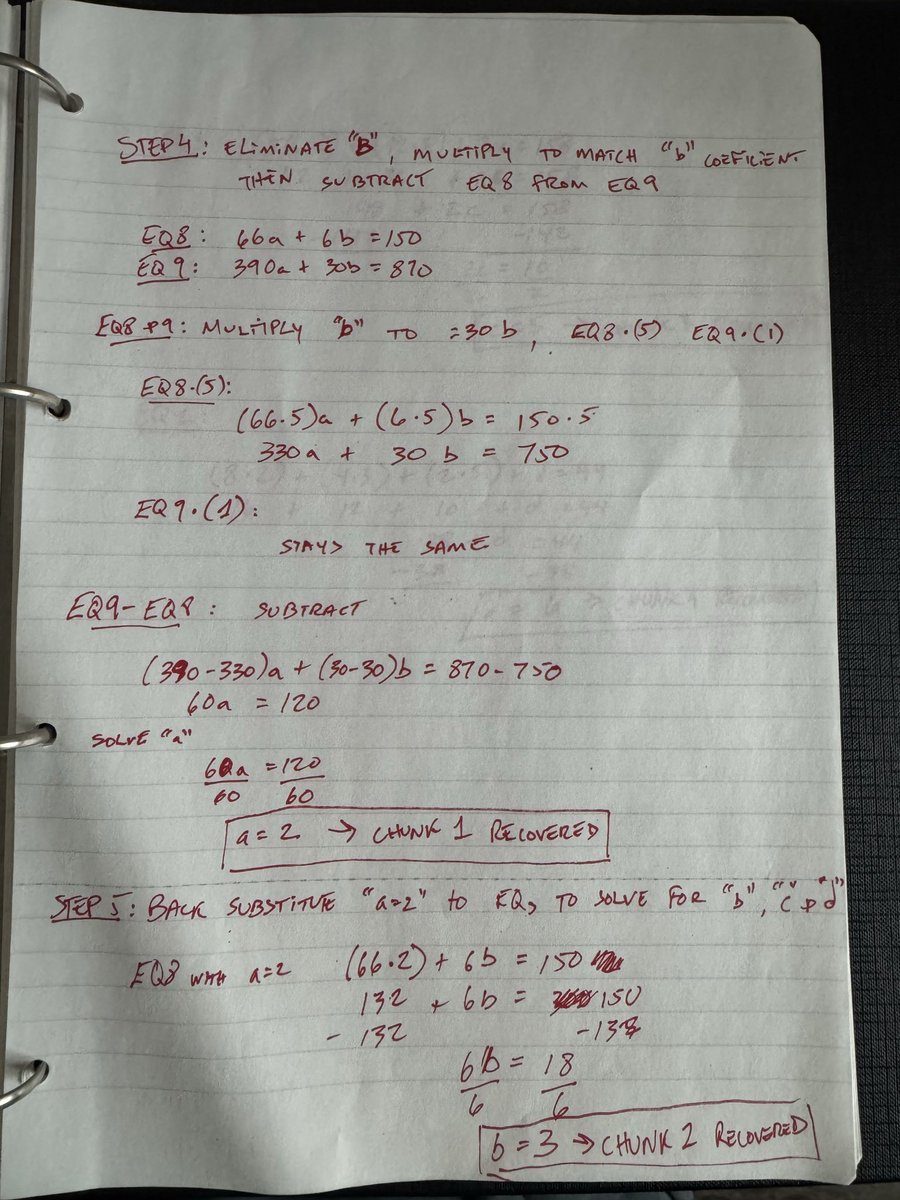 STEP 4: ELIMINATE "B", MULTIPLY TO MATCH "b" COEFICIENT
THEN SUBTRACT EQ8 FROM EQ9
EQ8: 66a + 6b = 150
EQ9: 390a + 30b = 870
EQ8 + 9: MULTIPLY "b" TO =30b, EQ8·(5) EQ9·(1)
EQ8·(5):
(66·5)a + (6·5)b = 150·5
330a + 30 b = 750
EQ9·(1):
STAYS THE SAME
EQ9-EQ8: SUBTRACT
(390-330)a + (30-30)b = 870-750
60a = 120
SOLVE "a"
60a = 120
60 60
a = 2 → CHUNK 1 RECOVERED
STEP 5: BACK SUBSTITUE "a=2" to EQ, TO SOLVE FOR "b", "c" + "d"
EQ8 WITH a=2 (66·2) + 6b = 150
132 + 6b = 150
- 132 -132
6b = 18
6 6
b = 3 → CHUNK 2 RECOVERED